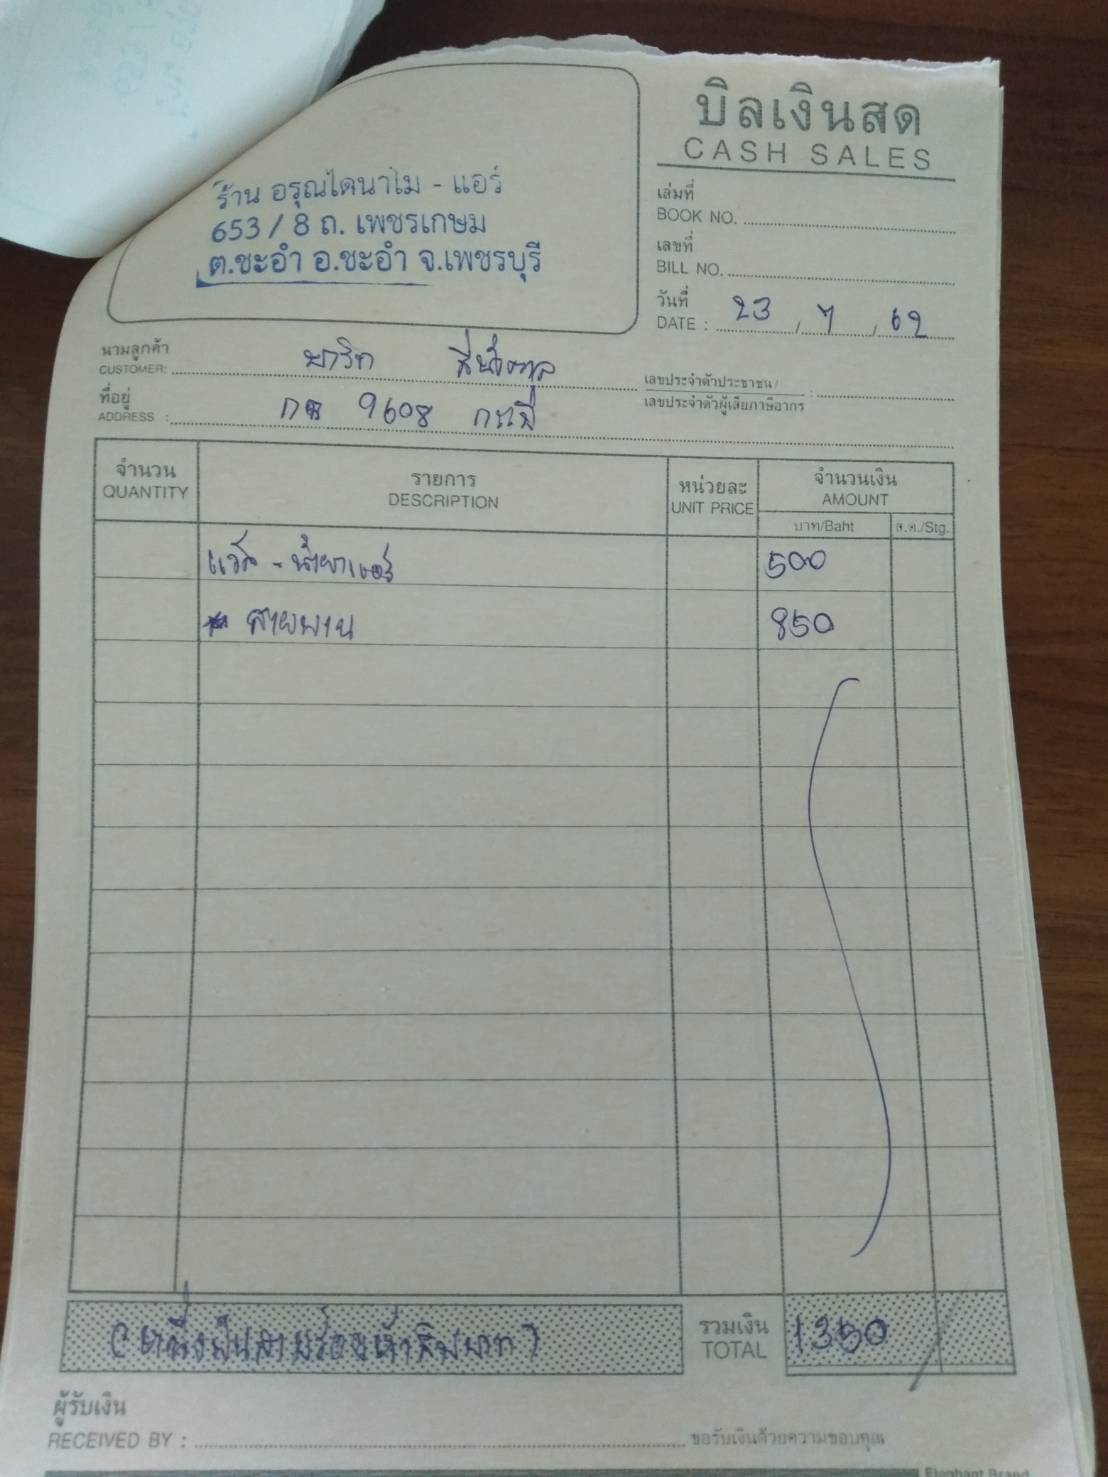 บิลเงินสด
CASH SALES
ร้าน อรุณไดนาโม - แอร์
653 / 8 ถ. เพชรเกษม
ต.ชะอำ อ.ชะอำ จ.เพชรบุรี
เล่มที่
BOOK NO.
เลขที่
BILL NO.
วันที่
DATE : 23 / 7 / 62
นามลูกค้า
CUSTOMER:
เลขประจำตัวประชาชน/
เลขประจำตัวผู้เสียภาษีอากร :
ที่อยู่
ADDRESS : กต 9608 กระบี่
จำนวน
QUANTITY
รายการ
DESCRIPTION
หน่วยละ
UNIT PRICE
จำนวนเงิน
AMOUNT
บาท/Baht ส.ต./Stg.
แว๊ค - น้ำยาแอร์ 500
สายพาน 850
(หนึ่งพันสามร้อยห้าสิบบาท)
รวมเงิน
TOTAL 1350
ผู้รับเงิน
RECEIVED BY :
ขอรับเงินด้วยความขอบคุณ
Elephant Brand